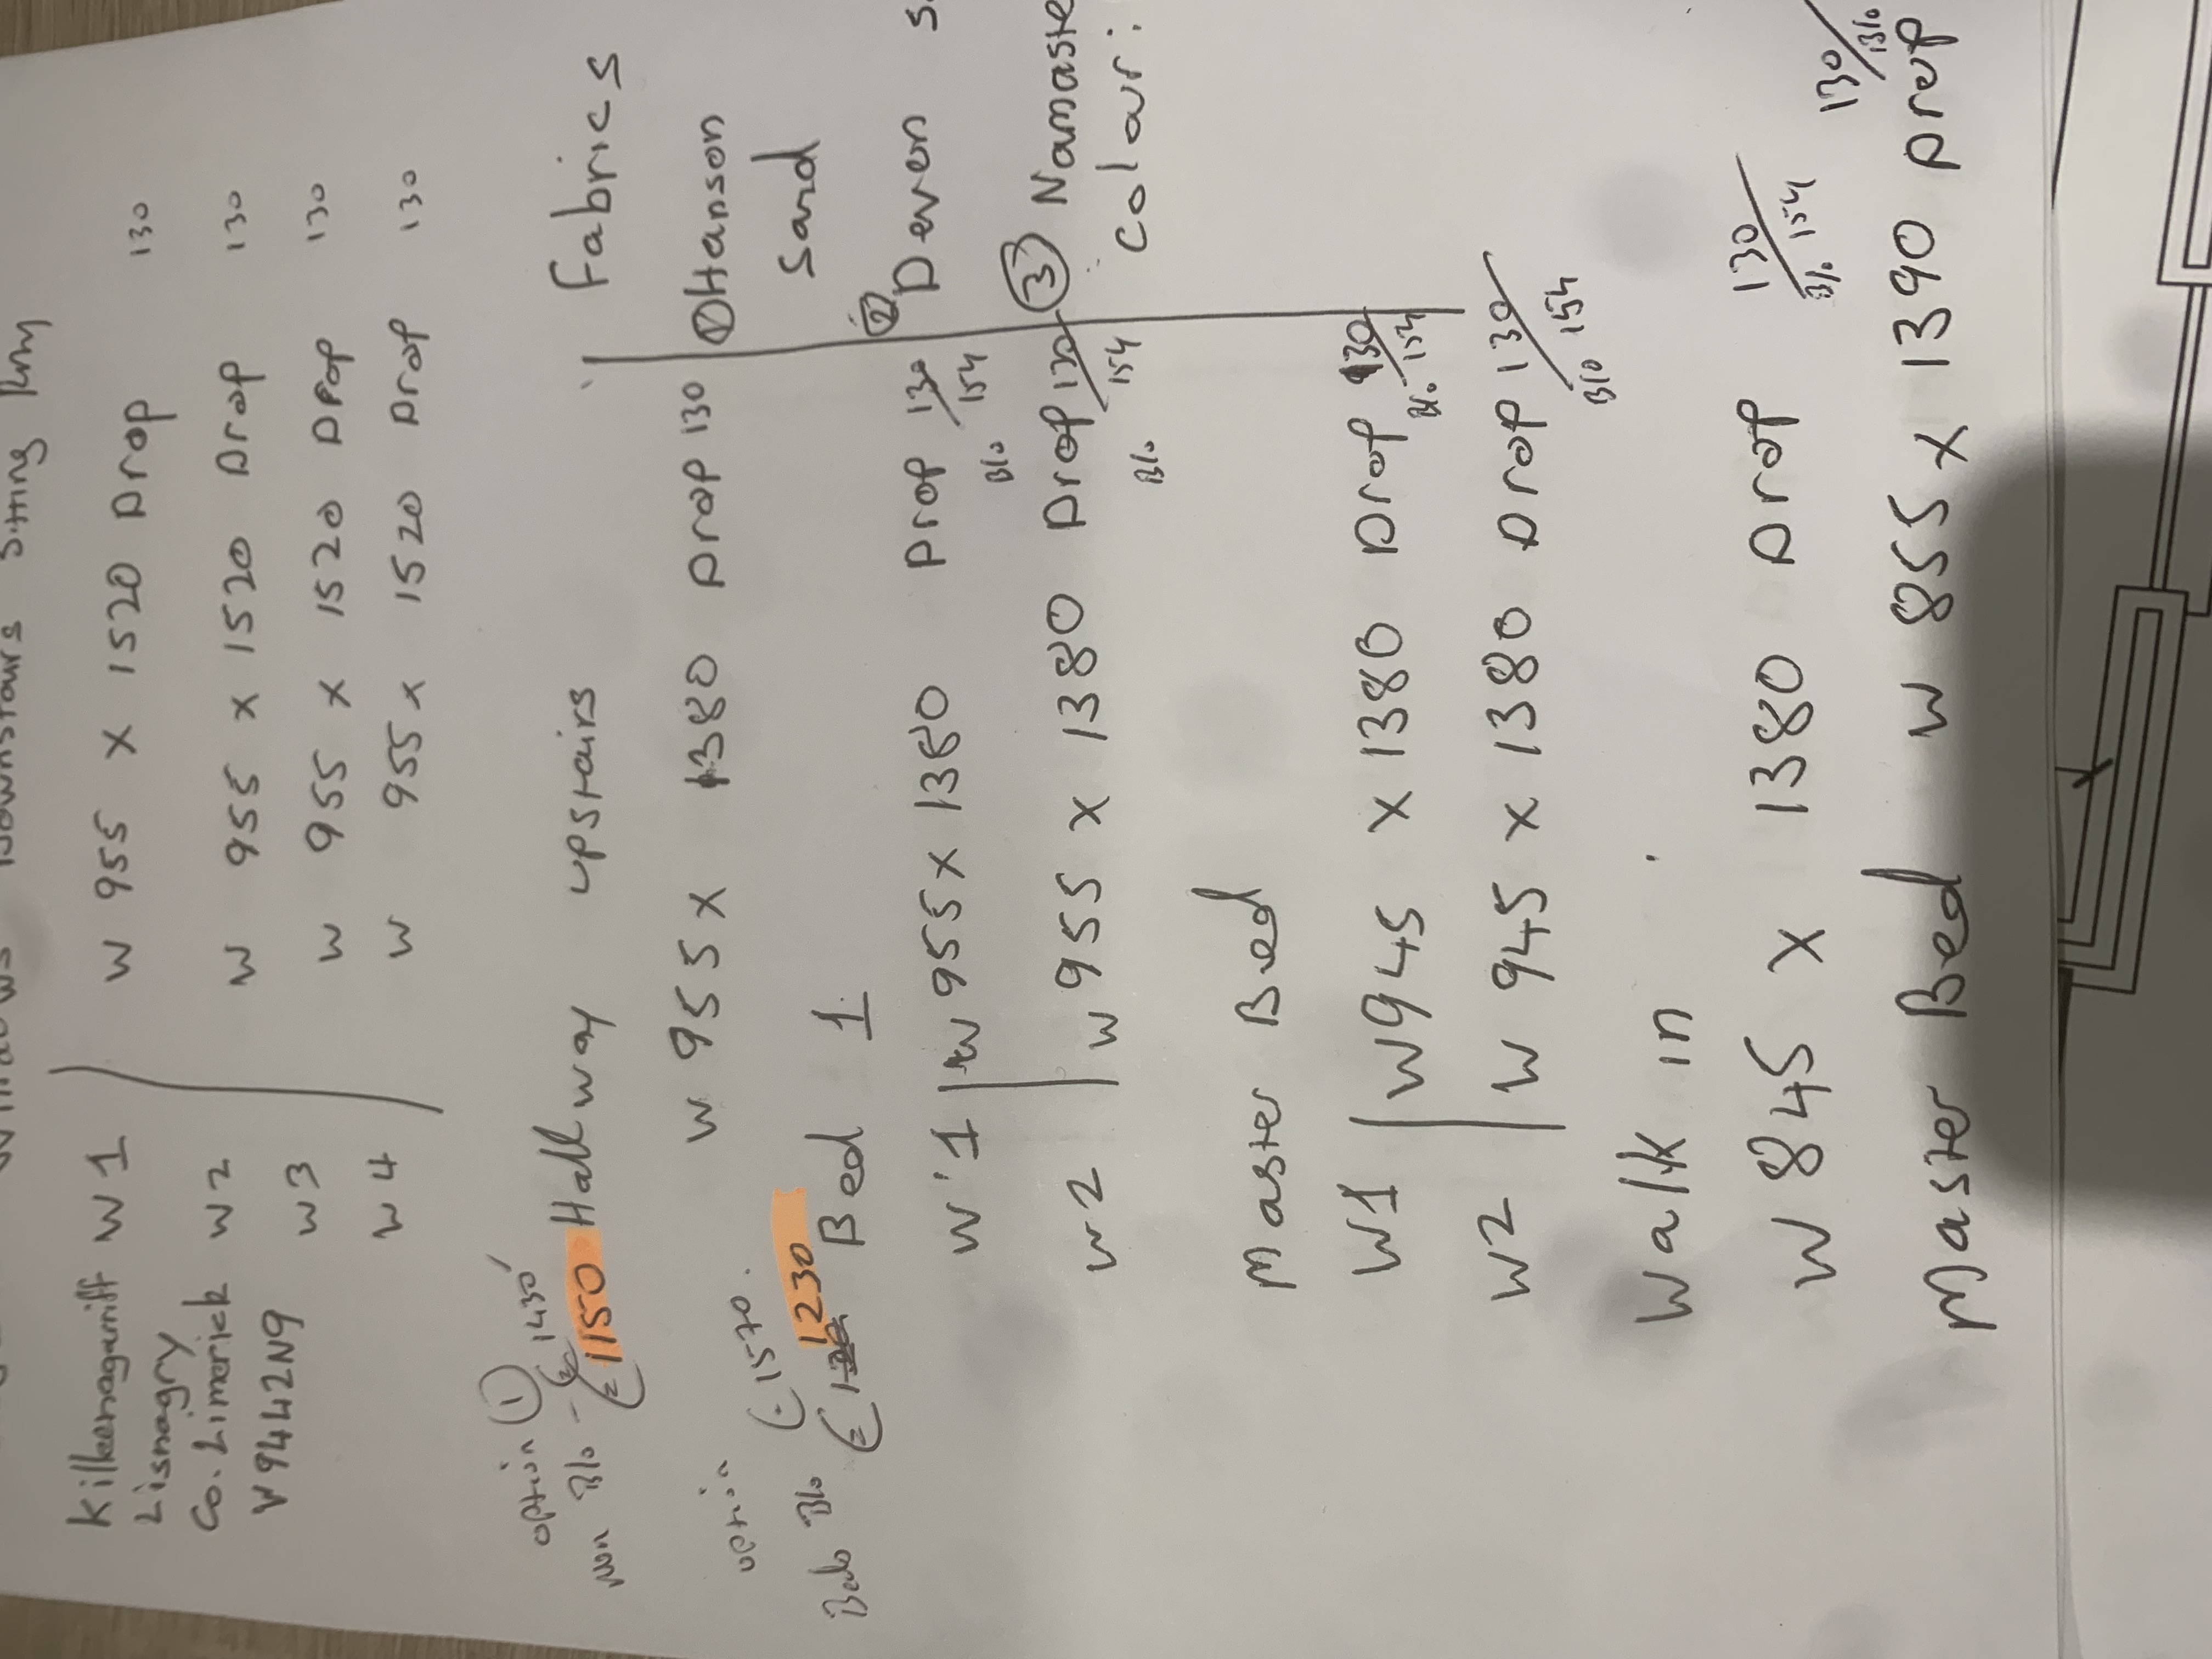 Windows Downstairs Sitting Rm
Kilkenagarriff W1 W 955 x 1520 Drop 130
Lisnagry
Co. Limerick W2 W 955 x 1520 Drop 130
V9442N9 W3 W 955 x 1520 Drop 130
W4 W 955 x 1520 Drop 130
option ①
€1430
Non Blo - €1150 Hallway upstairs Fabrics
W 955 x 1380 Drop 130 ① Hanson
Sand
option €1570.
Beds Blo €1230 Bed 1 ② Devon
W1 W 955 x 1380 Drop 130
Blo 154
③ Namaste
W2 W 955 x 1380 Drop 130
Blo 154
Colour:
Master Bed
W1 W945 x 1380 Drop 130
Blo 154
W2 W 945 x 1380 Drop 130
Blo 154
Walk in
W 845 x 1380 Drop 130
Blo 154
Master Bed W 855 x 1390 Drop 130
Blo